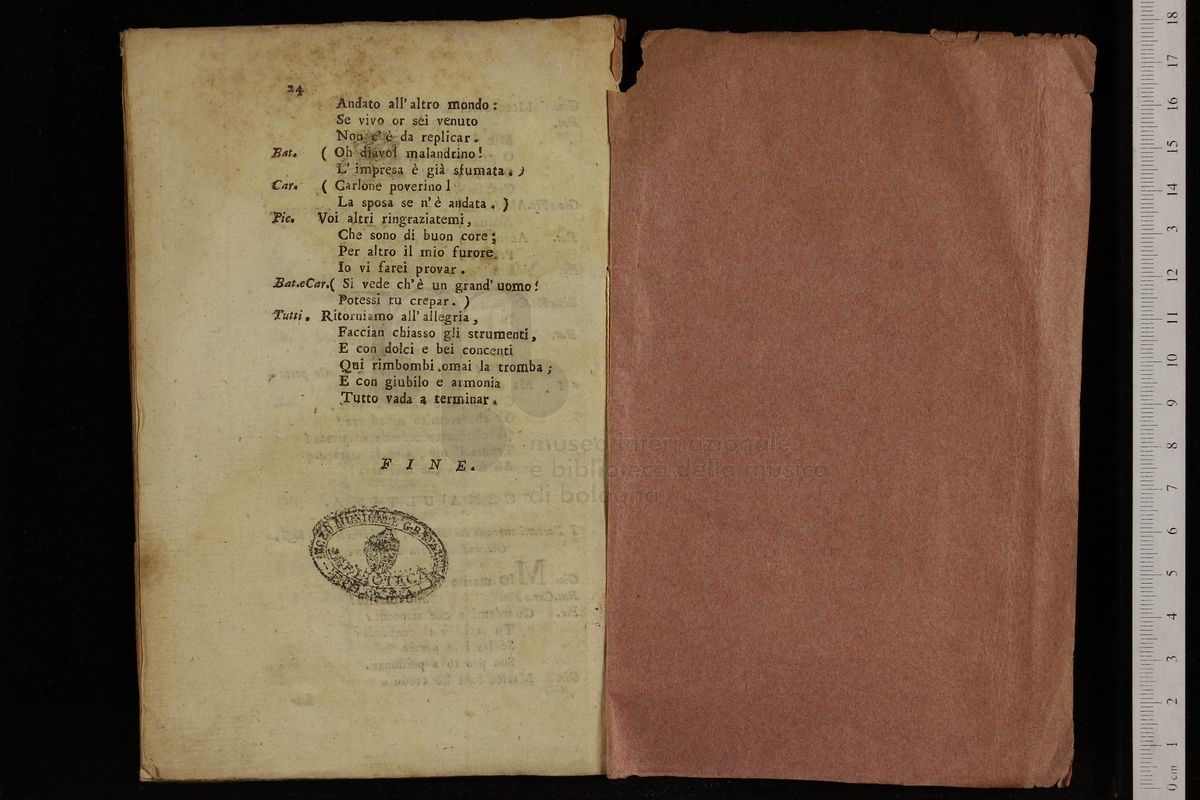 24
Andato all' altro mondo :
Se vivo or sei venuto
Non c' è da replicar .
Bat. ( Oh diavol malandrino !
L' impresa è già sfumata . )
Car. ( Carlone poverino !
La sposa se n' è andata . )
Pie. Voi altri ringraziatemi ,
Che sono di buon core ;
Per altro il mio furore
Io vi farei provar .
Bat. e Car. ( Si vede ch' è un grand' uomo !
Potessi tu crepar . )
Tutti . Ritorniamo all' allegria ,
Faccian chiasso gli strumenti ,
E con dolci e bei concenti
Qui rimbombi omai la tromba ;
E con giubilo e armonia
Tutto vada a terminar .
F I N E .
MUSICALE
BIBLIOTECA
museo internazionale
e biblioteca della musica
di bologna
0 cm 1 2 3 4 5 6 7 8 9 10 11 12 13 14 15 16 17 18